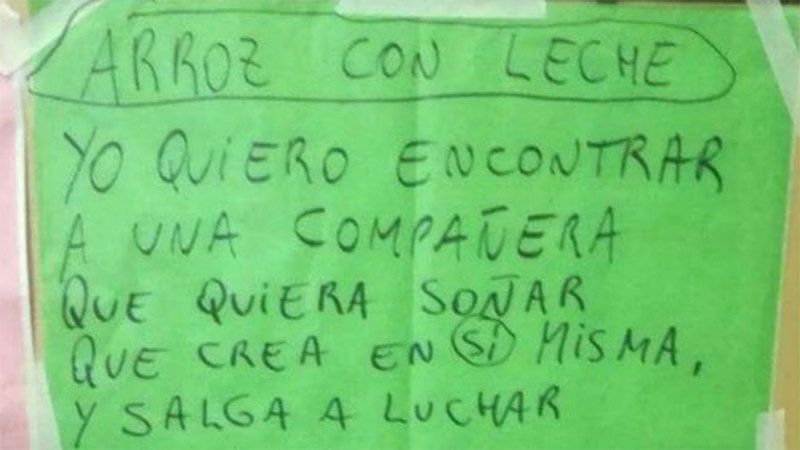 ARROZ CON LECHE
YO QUIERO ENCONTRAR
A UNA COMPAÑERA
QUE QUIERA SOÑAR
QUE CREA EN SÍ MISMA,
Y SALGA A LUCHAR